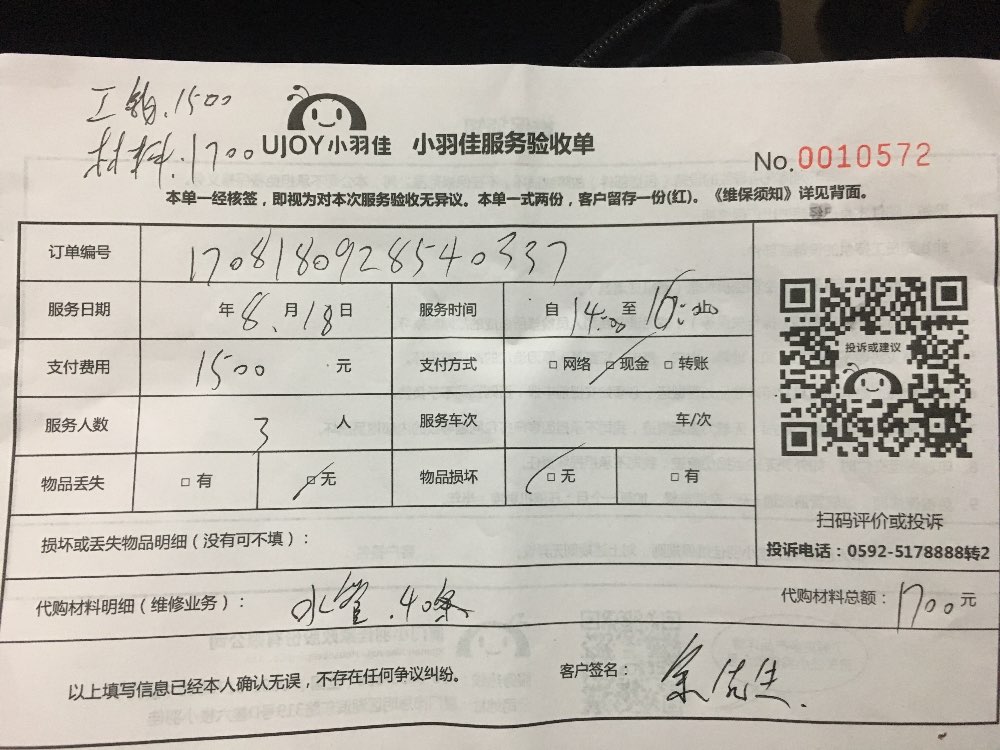 工钱.1500
材料.1700
UJOY小羽佳 小羽佳服务验收单
No.0010572
本单一经核签，即视为对本次服务验收无异议。本单一式两份，客户留存一份(红)。《维保须知》详见背面。
订单编号 1708180928540337
服务日期 年 8 月 18 日 服务时间 自 14:00 至 16:00
支付费用 1500 元 支付方式 □ 网络 □ 现金 □ 转账
服务人数 3 人 服务车次 车/次
物品丢失 □ 有 □ 无 物品损坏 □ 无 □ 有
投诉或建议
扫码评价或投诉
投诉电话：0592-5178888转2
损坏或丢失物品明细（没有可不填）：
代购材料明细（维修业务）： 水管.40条 代购材料总额： 1700 元
以上填写信息已经本人确认无误，不存在任何争议纠纷。 客户签名： 余先生.